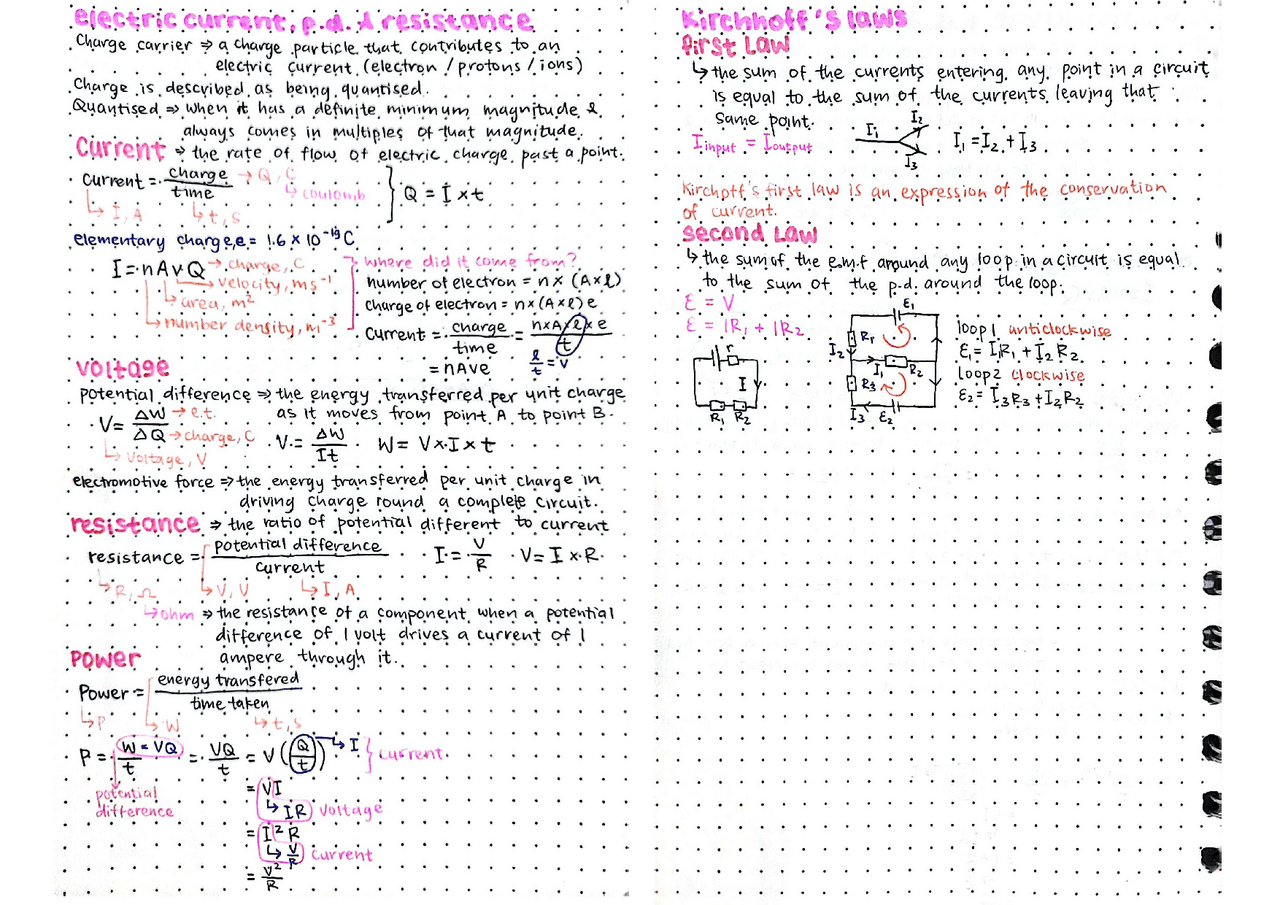 electric current, p.d. & resistance
Charge carrier ⇒ a charge particle that contributes to an
electric current (electron / protons / ions)
Charge is described as being quantised.
Quantised ⇒ when it has a definite minimum magnitude &
always comes in multiples of that magnitude.
Current ⇒ the rate of flow of electric charge past a point.
current = charge / time → Q, C
↳ coulomb
Q = I × t
↳ I, A ↳ t, s
elementary charge, e = 1.6 × 10⁻¹⁹ C
I = nAvQ → charge, C
→ velocity, ms⁻¹
↳ area, m²
↳ number density, m⁻³
where did it come from?
number of electron = n × (A × l)
charge of electron = n × (A × l) e
Current = charge / time = n × A × l × e / t
l/t = v
= nAve
voltage
potential difference ⇒ the energy transferred per unit charge
as it moves from point A to point B.
V = ΔW / ΔQ → e.t.
→ charge, C
↳ Voltage, V
V = ΔW / It W = V × I × t
electromotive force ⇒ the energy transferred per unit charge in
driving charge round a complete circuit.
resistance ⇒ the ratio of potential different to current
resistance = potential difference / current I = V / R V = I × R
↳ R, Ω ↳ V, V ↳ I, A
↳ ohm ⇒ the resistance of a component when a potential
difference of 1 volt drives a current of 1
ampere through it.
Power
Power = energy transfered / time taken
↳ P ↳ W ↳ t, s
P = W = VQ / t = VQ / t = V (Q / t) → I } current
potential
difference
= VI
↳ IR voltage
= I² R
↳ V/R current
= V² / R
Kirchhoff's laws
first Law
↳ the sum of the currents entering any point in a circuit
is equal to the sum of the currents leaving that
same point.
I input = I output
I₁ I₂ I₃
I₁ = I₂ + I₃
Kirchoff's first law is an expression of the conservation
of current.
second Law
↳ the sum of the e.m.f around any loop in a circuit is equal
to the sum of the p.d. around the loop.
ε = V
ε = IR₁ + IR₂
r
I
R₁ R₂
ε₁
R₁
I₂
I₁ R₂
R₃
I₃ ε₂
loop 1 anticlockwise
ε₁ = I₁R₁ + I₂R₂
loop2 clockwise
ε₂ = I₃R₃ + I₂R₂